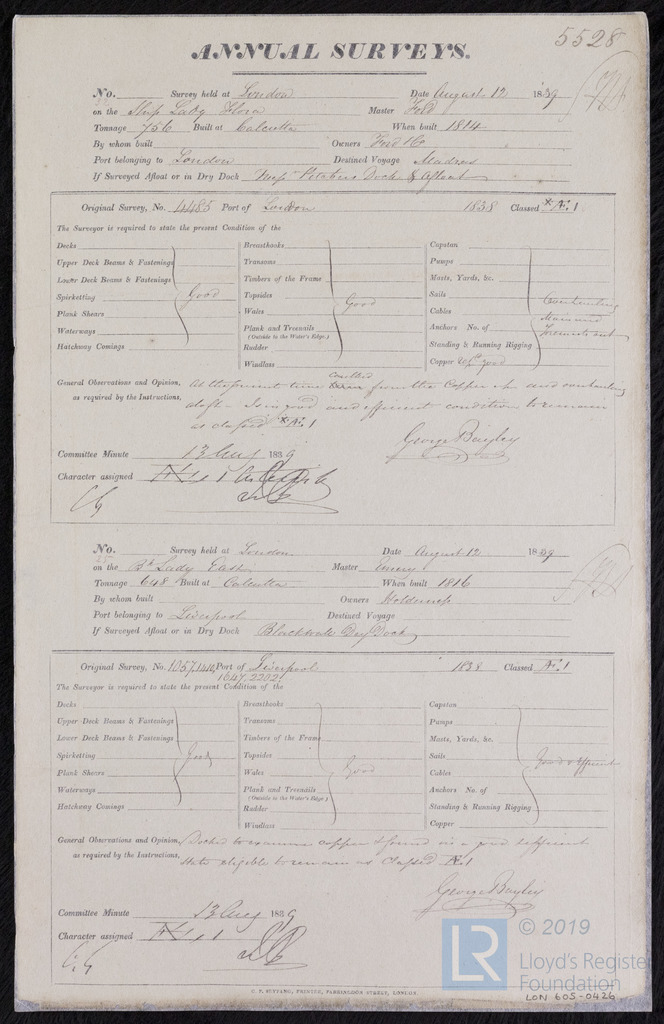 5528
ANNUAL SURVEYS.
No. Survey held at London Date August 12 1839
on the Ship Lady Flora Master Ford
Tonnage 756 Built at Calcutta When built 1814
By whom built Owners Ford & Co
Port belonging to London Destined Voyage Madras
If Surveyed Afloat or in Dry Dock Dock & Afloat
Original Survey, No. 4485 Port of London 1838 Classed Æ 1
The Surveyor is required to state the present Condition of the
Decks Breasthooks Capstan
Upper Deck Beams & Fastenings Transoms Pumps
Lower Deck Beams & Fastenings Timbers of the Frame Masts, Yards, &c.
Spirketting Good Topsides Good Sails
Plank Shears Wales Cables
Waterways Plank and Treenails Anchors No. of
(Outside to the Water's Edge.)
Hatchway Comings Rudder Standing & Running Rigging
Windlass Copper good
General Observations and Opinion, At the present time Caulked from the Copper up and
as required by the Instructions, is in good and efficient condition to remain
as classed Æ 1
George Bayley
Committee Minute 13 Aug 1839
Character assigned Æ 1
No. Survey held at London Date August 12 1839
on the Bk Lady East Master
Tonnage 648 Built at Calcutta When built 1816
By whom built Owners Holderness
Port belonging to Liverpool Destined Voyage
If Surveyed Afloat or in Dry Dock Blackwall Dry Dock
Original Survey, No. 1057, 1410, Port of Liverpool 1838 Classed Æ 1
1647, 2202
The Surveyor is required to state the present Condition of the
Decks Breasthooks Capstan
Upper Deck Beams & Fastenings Transoms Pumps
Lower Deck Beams & Fastenings Timbers of the Frame Masts, Yards, &c.
Spirketting Good Topsides Sails Good & Efficient
Plank Shears Wales Good Cables
Waterways Plank and Treenails Anchors No. of
(Outside to the Water's Edge.)
Hatchway Comings Rudder Standing & Running Rigging
Windlass Copper
General Observations and Opinion, Docked to examine copper & found in a good & efficient
as required by the Instructions, state eligible to remain as Classed Æ 1
George Bayley
Committee Minute 13 Aug 1839
Character assigned Æ 1
LR © 2019
Lloyd's Register
Foundation
LON 605-0426